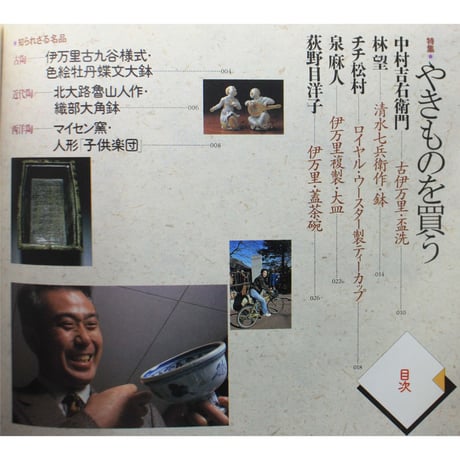 目次
特集●やきものを買う
中村吉右衛門 古伊万里・盃洗 010
林望 清水七兵衛作・鉢 014
チチ松村 ロイヤル・ウースター製ティーカップ 018
泉麻人 伊万里複製・大皿 022
荻野目洋子 伊万里・蓋茶碗 026
●知られざる名品
古陶 伊万里古九谷様式・
色絵牡丹蝶文大鉢 004
近代陶 北大路魯山人作・
織部大角鉢 006
西洋陶 マイセン窯・
人形「子供楽団」 008